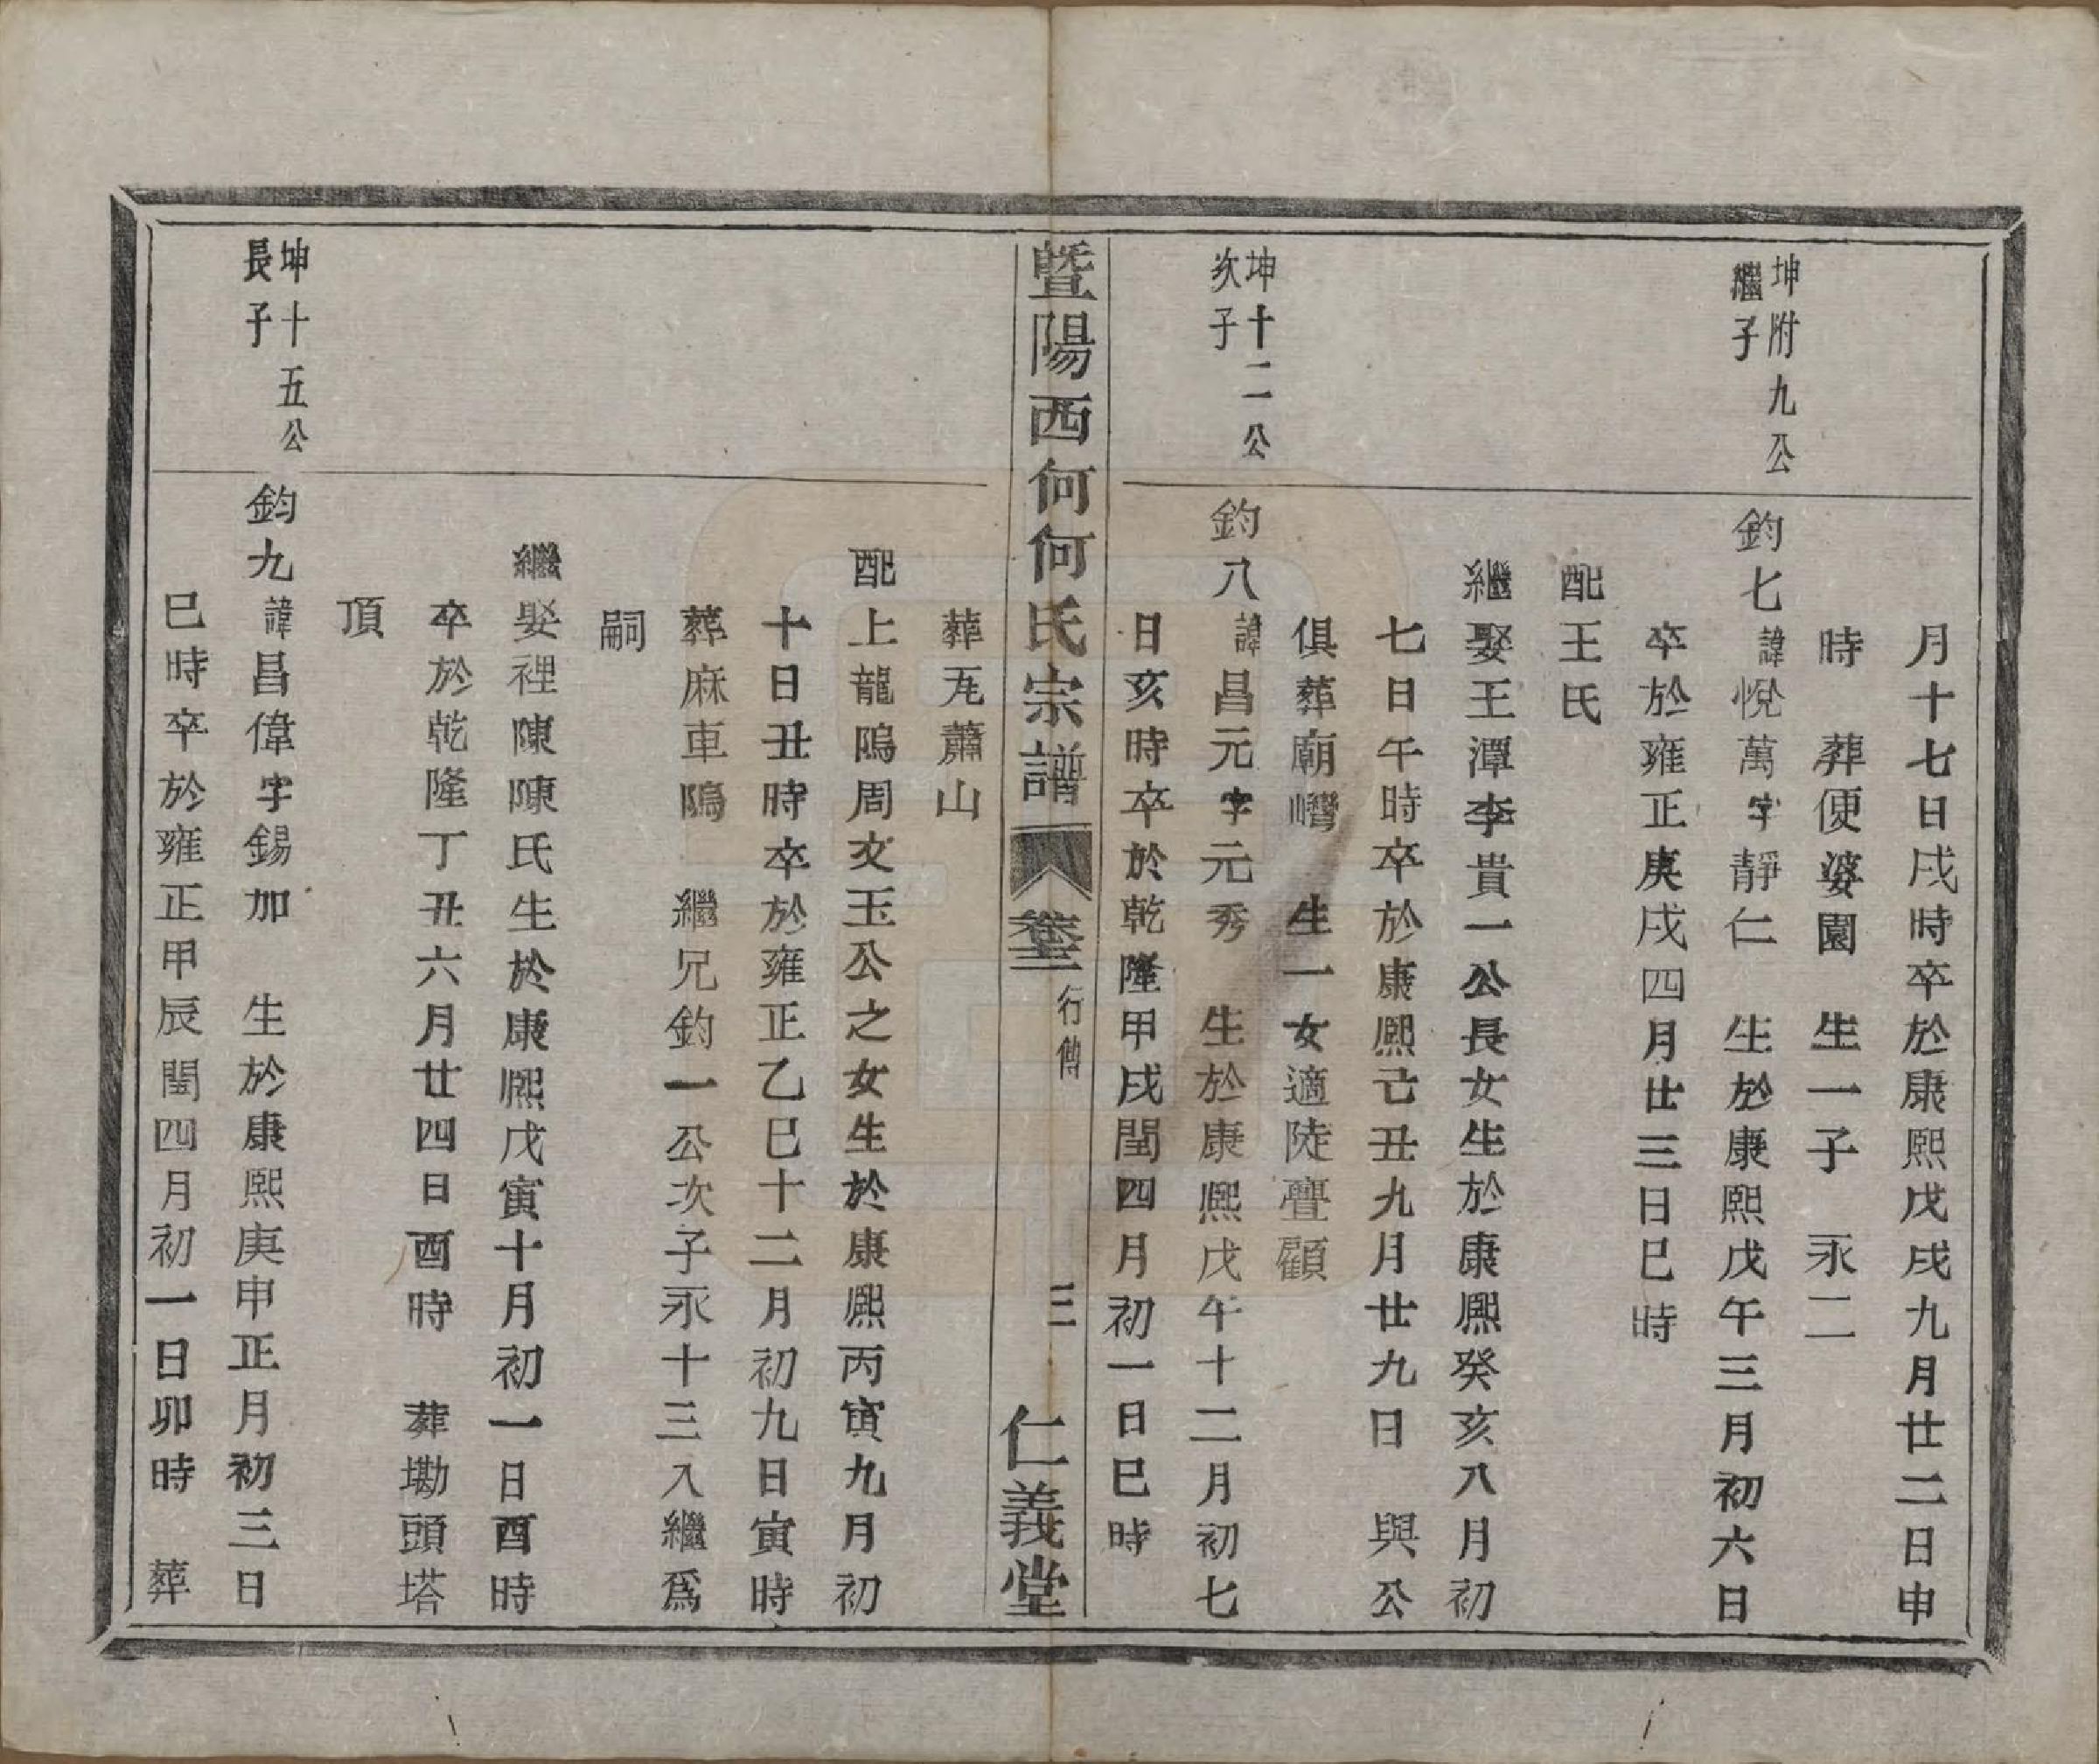 月十七日戌時卒於康熙戊戌九月廿二日申
時　葬便婆園　生一子　永二
坤附九公
繼子
鈞七諱悅萬字靜仁　生於康熙戊午三月初六日
卒於雍正庚戌四月廿三日巳時
配王氏
繼娶王潭李貴一公長女生於康熙癸亥八月初
七日午時卒於康熙己丑九月廿九日　與公
俱葬廟㠝　生一女適陡亹顧
坤十二公
次子
鈞八諱昌元字元秀　生於康熙戊午十二月初七
日亥時卒於乾隆甲戌閏四月初一日巳時
暨陽西何何氏宗譜　卷三　行傳　三　仁義堂
葬瓦蕭山
配上龍鴟周文玉公之女生於康熙丙寅九月初
十日丑時卒於雍正乙巳十二月初九日寅時
葬麻車隖　繼兄鈞一公次子永十三入繼爲
嗣
繼娶裡陳陳氏生於康熙戊寅十月初一日酉時
卒於乾隆丁丑六月廿四日酉時　葬墈頭塔
頂
坤十五公
長子
鈞九諱昌偉字錫加　生於康熙庚申正月初三日
巳時卒於雍正甲辰閏四月初一日卯時　葬